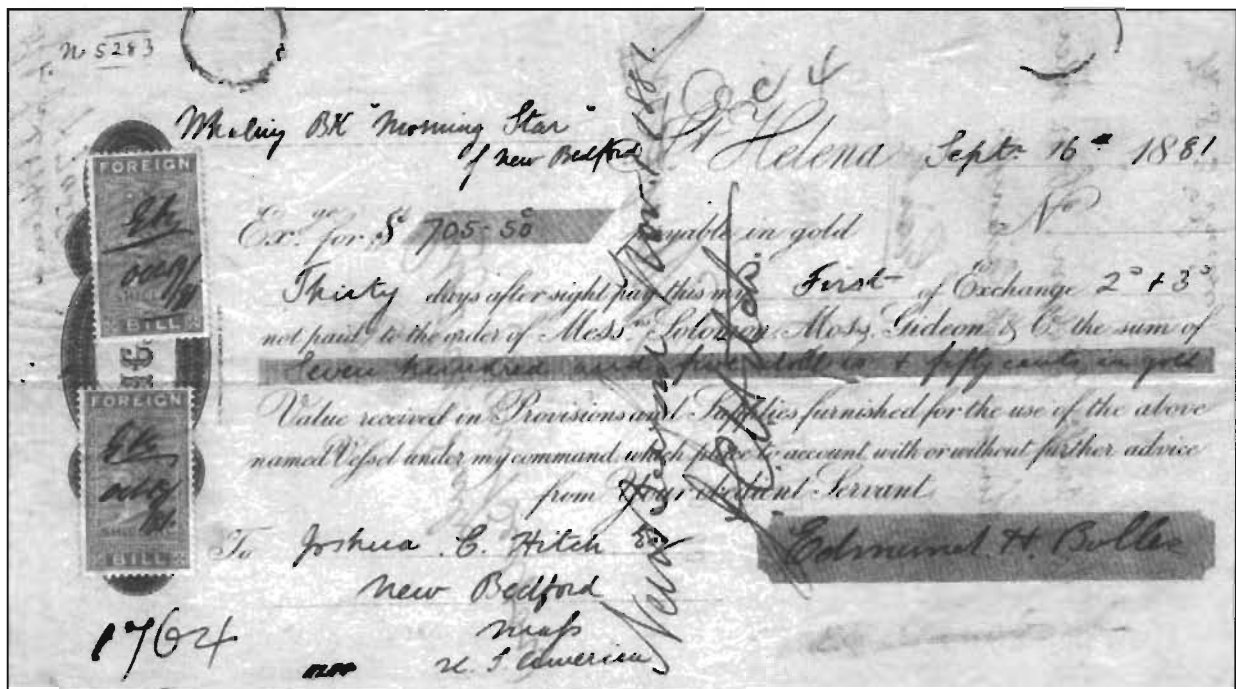 No 5283
Whaling BK "Morning Star"
of New Bedford
St Helena Sept. 16th 1881
Exge for $ 705-50c payable in gold No
Thirty days after sight pay this my First of Exchange 2d & 3d
not paid to the order of Messrs Solomon, Moss, Gideon & Co. the sum of
Seven hundred and five dollars & fifty cents in gold
Value received in Provisions and Supplies furnished for the use of the above
named Vessel under my command, which place to account with or without further advice
from Your obedient Servant.
To Joshua C. Hitch Esq
Edmund H. Bolles
New Bedford
Mass
U. S America
1764
FOREIGN
BILL
FOREIGN
BILL
New Bedford Nov. 1881.